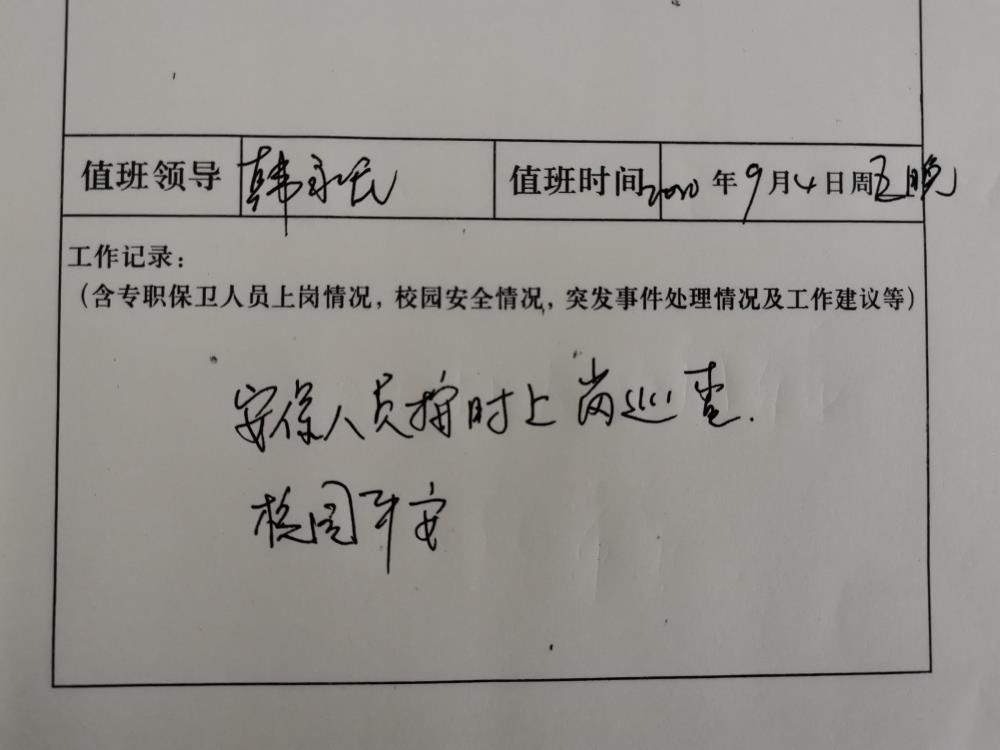 值班领导 韩永长 值班时间 2020 年 9 月 4 日周五晚
工作记录：
（含专职保卫人员上岗情况，校园安全情况，突发事件处理情况及工作建议等）
安保人员按时上岗巡查.
校园平安